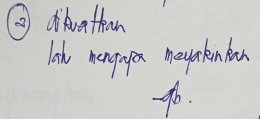 ② dikuatkan
lah mengapa meyakinkan